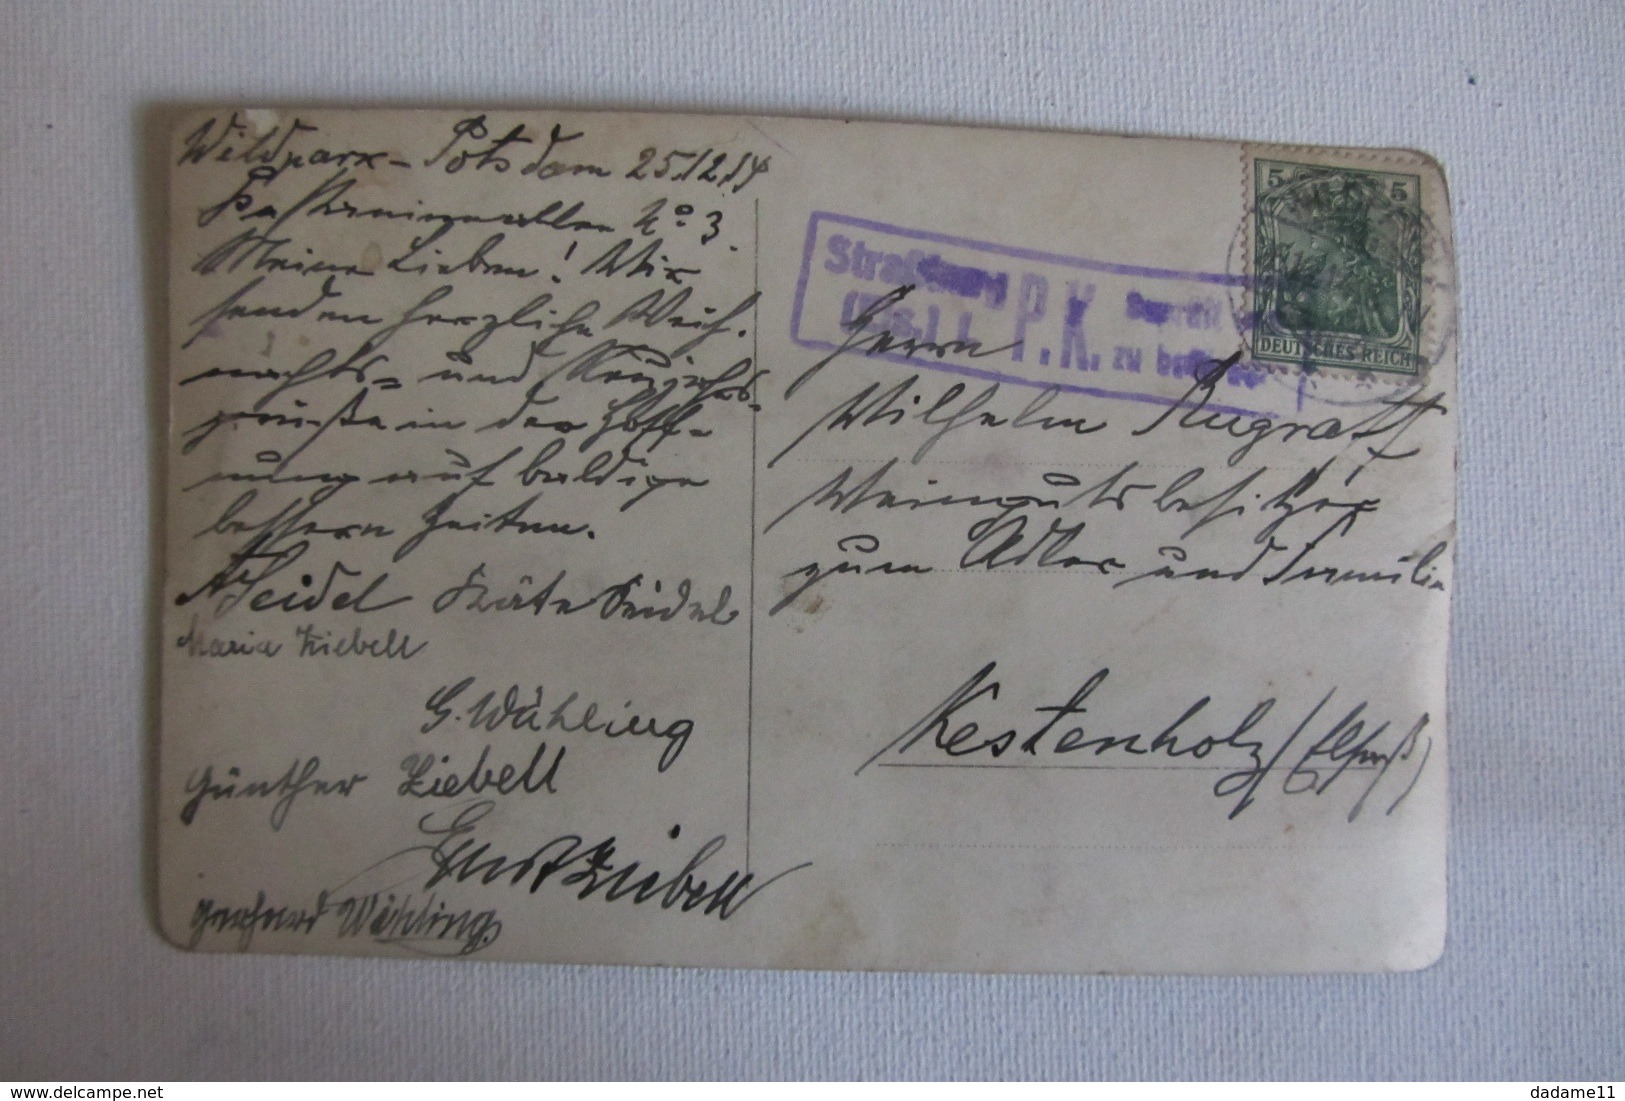 Wildpark-Potsdam 25.12.14
Fasanerieallee No 3.
Meine Lieben! Wir
senden herzliche Weih-
nachts- und Neujahrs-
grüße in der Hoff-
nung auf baldige
bessern Zeiten.
A Seidel Käte Seidel
Maria Ziebell
G. Wühling
Günther Ziebell
Kurt Ziebell
Gerhard Wühling.
Straßburg
(Els.) 1.
P.K.
Geprüft
zu befördern
5 5
DEUTSCHES REICH
Herrn
Wilhelm Rugraff
Weingutsbesitzer
zum Adler und Familie
Kestenholz/(Elsaß)
dadame11